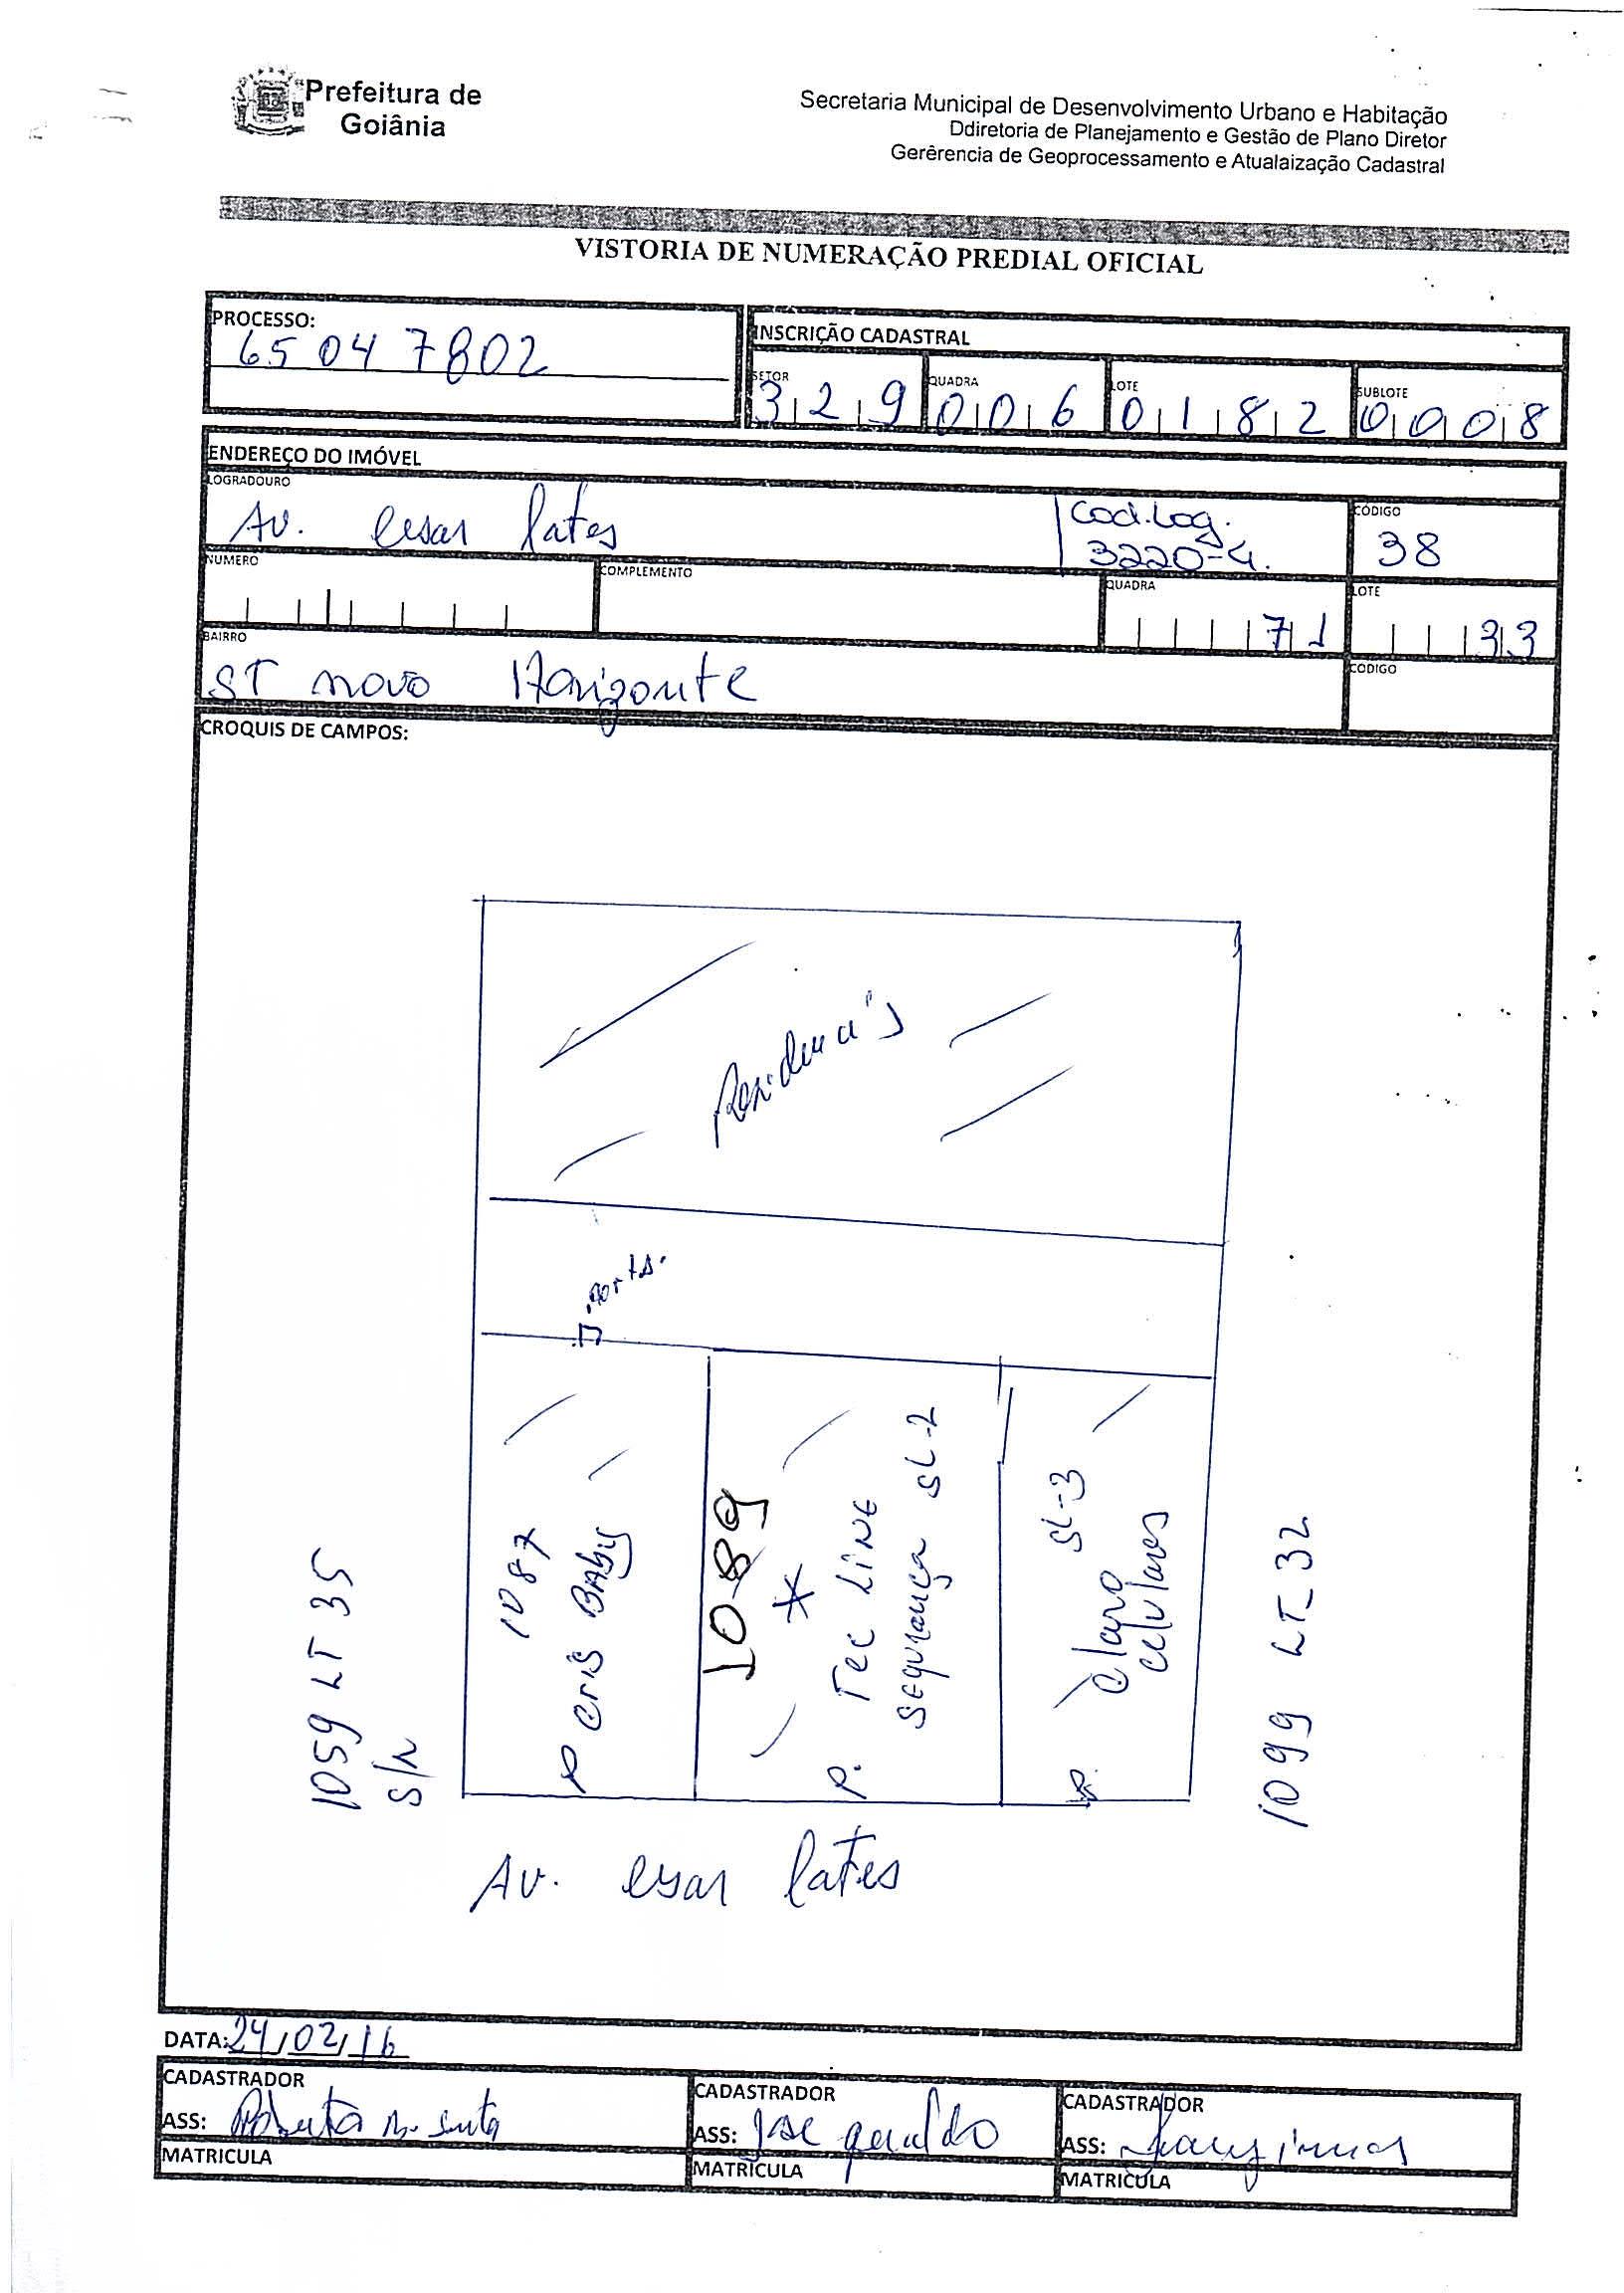 Prefeitura de
Goiânia
Secretaria Municipal de Desenvolvimento Urbano e Habitação
Ddiretoria de Planejamento e Gestão de Plano Diretor
Gerêrencia de Geoprocessamento e Atualaização Cadastral
VISTORIA DE NUMERAÇÃO PREDIAL OFICIAL
PROCESSO:
65047802
INSCRIÇÃO CADASTRAL
SETOR
329
QUADRA
006
LOTE
0182
SUBLOTE
0008
ENDEREÇO DO IMÓVEL
LOGRADOURO
Av. Cesar lates
Cod.Log.
3220-4.
CÓDIGO
38
NUMERO
COMPLEMENTO
QUADRA
71
LOTE
33
BAIRRO
ST novo Horizonte
CODIGO
CROQUIS DE CAMPOS:
Residencia's
porta.
1087
P Cris BAby
1089
*
P. Tec LiNE
SEgurança SL-2
SL-3
P. Claro
celulares
1059 LT 35
S/N
1099 LT_32
Av. Cesar lates
DATA: 24/02/16
CADASTRADOR
ASS:
MATRICULA
CADASTRADOR
ASS: Jose geraldo
MATRICULA
CADASTRADOR
ASS:
MATRICULA